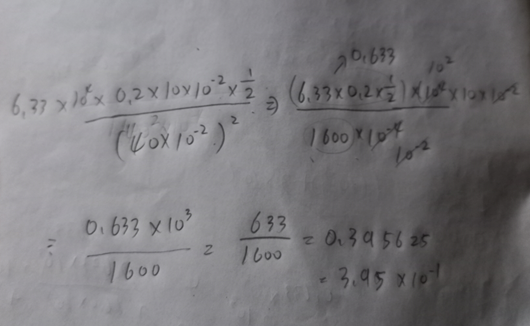 0.633
6.33 × 10² × 0.2 × 10 × 10⁻² × 1/2 / (40 × 10⁻²)² ⇒ (6.33 × 0.2 × 1/2) × 10² × 10 × 10⁻² / 1600 × 10⁻⁴
10²
10⁻²
= 0.633 × 10³ / 1600 = 633 / 1600 = 0.395625
= 3.95 × 10⁻¹